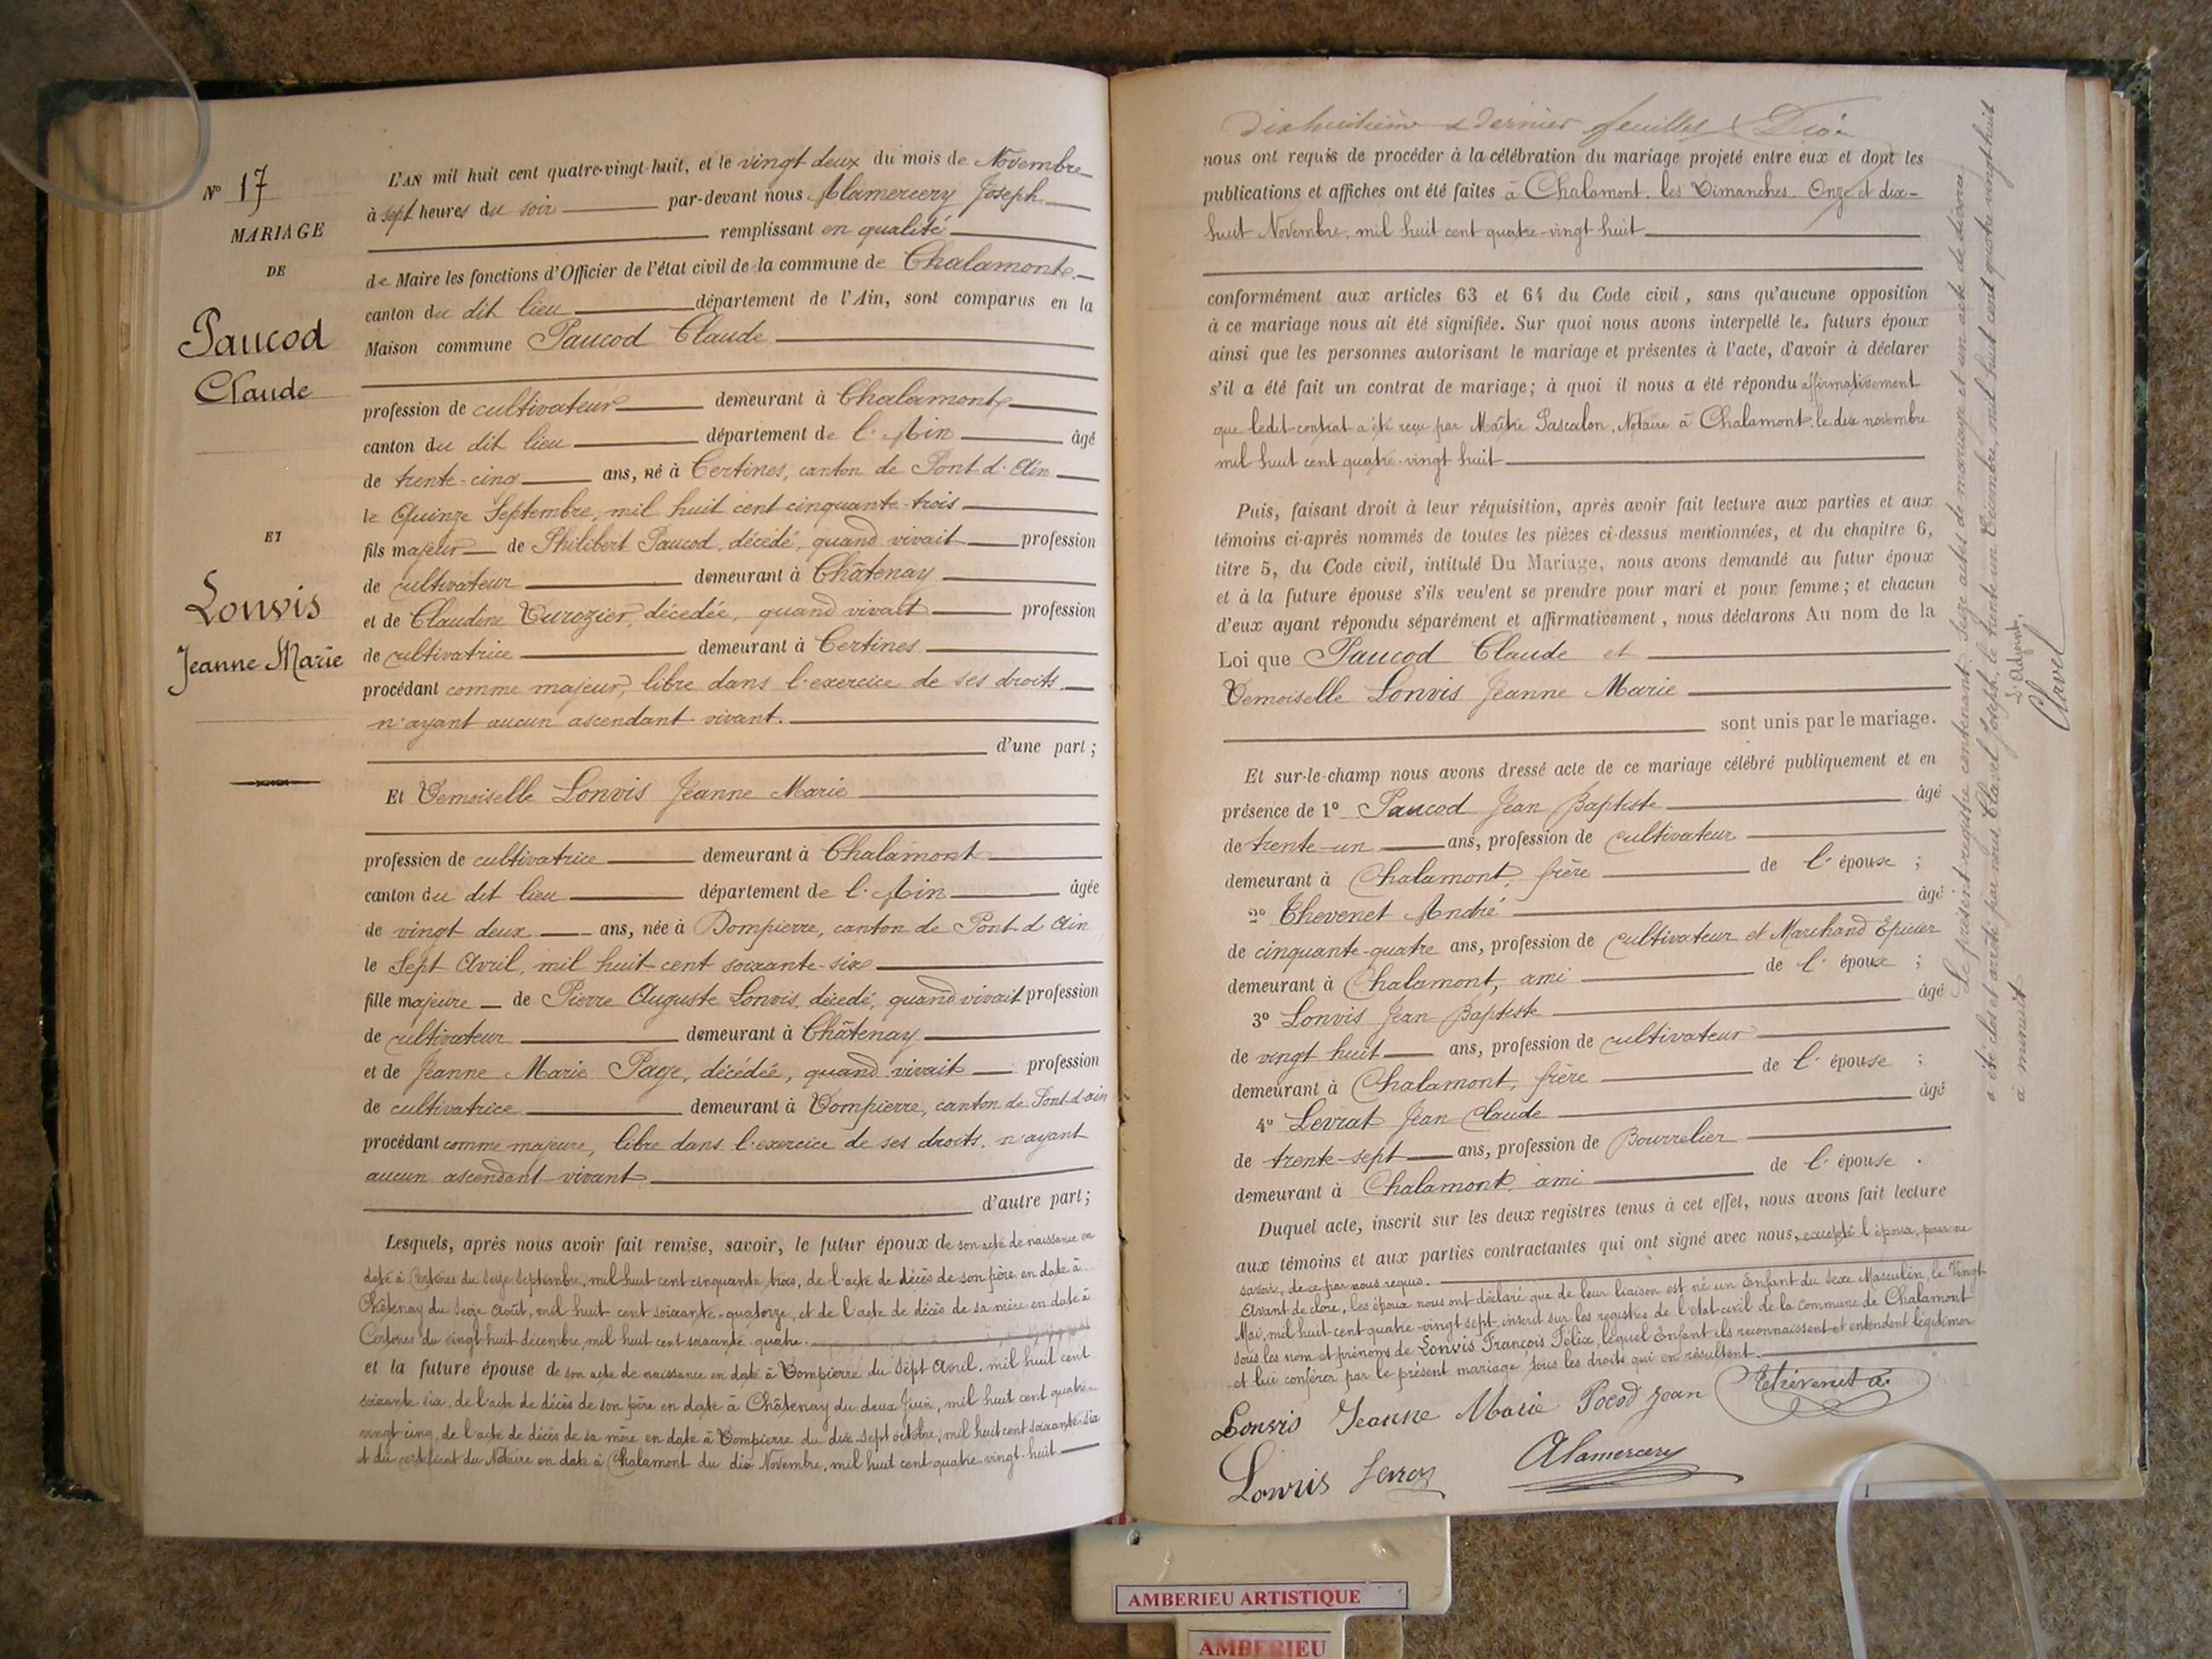 N° 17
MARIAGE
DE
Paucod
Claude
ET
Lonvis
Jeanne Marie
L'AN mil huit cent quatre-vingt-huit, et le vingt deux du mois de Novembre
à sept heures du soir par-devant nous Alamercery Joseph
remplissant en qualité
de Maire les fonctions d'Officier de l'état civil de la commune de Chalamont
canton du dit lieu département de l'Ain, sont comparus en la
Maison commune Paucod Claude
profession de cultivateur demeurant à Chalamont
canton du dit lieu département de l'Ain âgé
de trente-cinq ans, né à Certines, canton de Pont d'Ain
le Quinze Septembre, mil huit cent cinquante-trois
fils majeur de Philibert Paucod, décédé, quand vivait profession
de cultivateur demeurant à Châtenay
et de Claudine Curozier, décedée, quand vivait profession
de cultivatrice demeurant à Certines
procédant comme majeur, libre dans l'exercice de ses droits
n'ayant aucun ascendant vivant.
d'une part;
Et Demoiselle Lonvis Jeanne Marie
profession de cultivatrice demeurant à Chalamont
canton du dit lieu département de l'Ain âgée
de vingt deux ans, née à Dompierre, canton de Pont d'Ain
le Sept Avril, mil huit cent soixante-six
fille majeure de Pierre Auguste Lonvis, décedé, quand vivait profession
de cultivateur demeurant à Châtenay
et de Jeanne Marie Page, décédée, quand vivait profession
de cultivatrice demeurant à Dompierre, canton de Pont-d'ain
procédant comme majeure, libre dans l'exercice de ses droits, n'ayant
aucun ascendant vivant
d'autre part;
Lesquels, après nous avoir fait remise, savoir, le futur époux de son acte de naissance en
date à Certines du seize Septembre, mil huit cent cinquante trois, de l'acte de décès de son père en date à
Châtenay du Seize Août, mil huit cent soixante-quatorze, et de l'acte de décès de sa mère en date à
Certines du vingt-huit décembre, mil huit cent soixante-quatre.
et la future épouse de son acte de naissance en date à Dompierre du Sept Avril, mil huit cent
soixante six, de l'acte de décès de son père en date à Châtenay du deux Juin, mil huit cent quatre-
vingt cinq, de l'acte de décès de sa mère en date à Dompierre du dix-sept octobre, mil huit cent soixante-six
et du certificat du Notaire en date à Chalamont du dix Novembre, mil huit cent quatre-vingt-huit
Dixhuitième & dernier feuillet
nous ont requis de procéder à la célébration du mariage projeté entre eux et dont les
publications et affiches ont été faites à Chalamont. les Dimanches Onze et dix-
huit Novembre, mil huit cent quatre-vingt huit
conformément aux articles 63 et 64 du Code civil, sans qu'aucune opposition
à ce mariage nous ait été signifiée. Sur quoi nous avons interpellé les futurs époux
ainsi que les personnes autorisant le mariage et présentes à l'acte, d'avoir à déclarer
s'il a été fait un contrat de mariage; à quoi il nous a été répondu affirmativement
que ledit contrat a été reçu par Maître Pascalon, Notaire à Chalamont, le dix novembre
mil huit cent quatre-vingt huit
Puis, faisant droit à leur réquisition, après avoir fait lecture aux parties et aux
témoins ci-après nommés de toutes les pièces ci-dessus mentionnées, et du chapitre 6,
titre 5, du Code civil, intitulé Du Mariage, nous avons demandé au futur époux
et à la future épouse s'ils veulent se prendre pour mari et pour femme; et chacun
d'eux ayant répondu séparément et affirmativement, nous déclarons Au nom de la
Loi que Paucod Claude et
Demoiselle Lonvis Jeanne Marie
sont unis par le mariage.
Et sur-le-champ nous avons dressé acte de ce mariage célébré publiquement et en
présence de 1° Paucod Jean Baptiste âgé
de trente-un ans, profession de cultivateur
demeurant à Chalamont, frère de l'épouse ;
2° Thevenet André âgé
de cinquante-quatre ans, profession de cultivateur et Marchand Epicier
demeurant à Chalamont, ami de l'épouse ;
3° Lonvis Jean Baptiste âgé
de vingt huit ans, profession de cultivateur
demeurant à Chalamont, frère de l'épouse ;
4° Levrat Jean Claude âgé
de trente-sept ans, profession de Bourrelier
demeurant à Chalamont, ami de l'épouse .
Duquel acte, inscrit sur les deux registres tenus à cet effet, nous avons fait lecture
aux témoins et aux parties contractantes qui ont signé avec nous, excepté l'époux, pour ne
savoir, de ce par nous requis.
Avant de clore, les époux nous ont déclaré que de leur liaison est né un Enfant du Sexe Masculin, le Vingt
Mai, mil huit cent quatre-vingt sept, inscrit sur les registres de l'état-civil de la commune de Chalamont
sous les nom et prénoms de Lonvis François Félix, lequel Enfant ils reconnaissent et entendent légitimer
et lui conférer par le présent mariage tous les droits qui en résultent.
Lonvis Jeanne Marie Pocod Jean Thévenet a.
Lonvis
Alamercery
Le présent registre contenant Seize actes de mariage et un acte de divorce
a été clos et arrêté par nous Clavel Joseph, le trente-un Décembre, mil huit cent quatre vingt huit
à minuit
L'Adjoint,
Clavel
AMBERIEU ARTISTIQUE
AMBERIEU